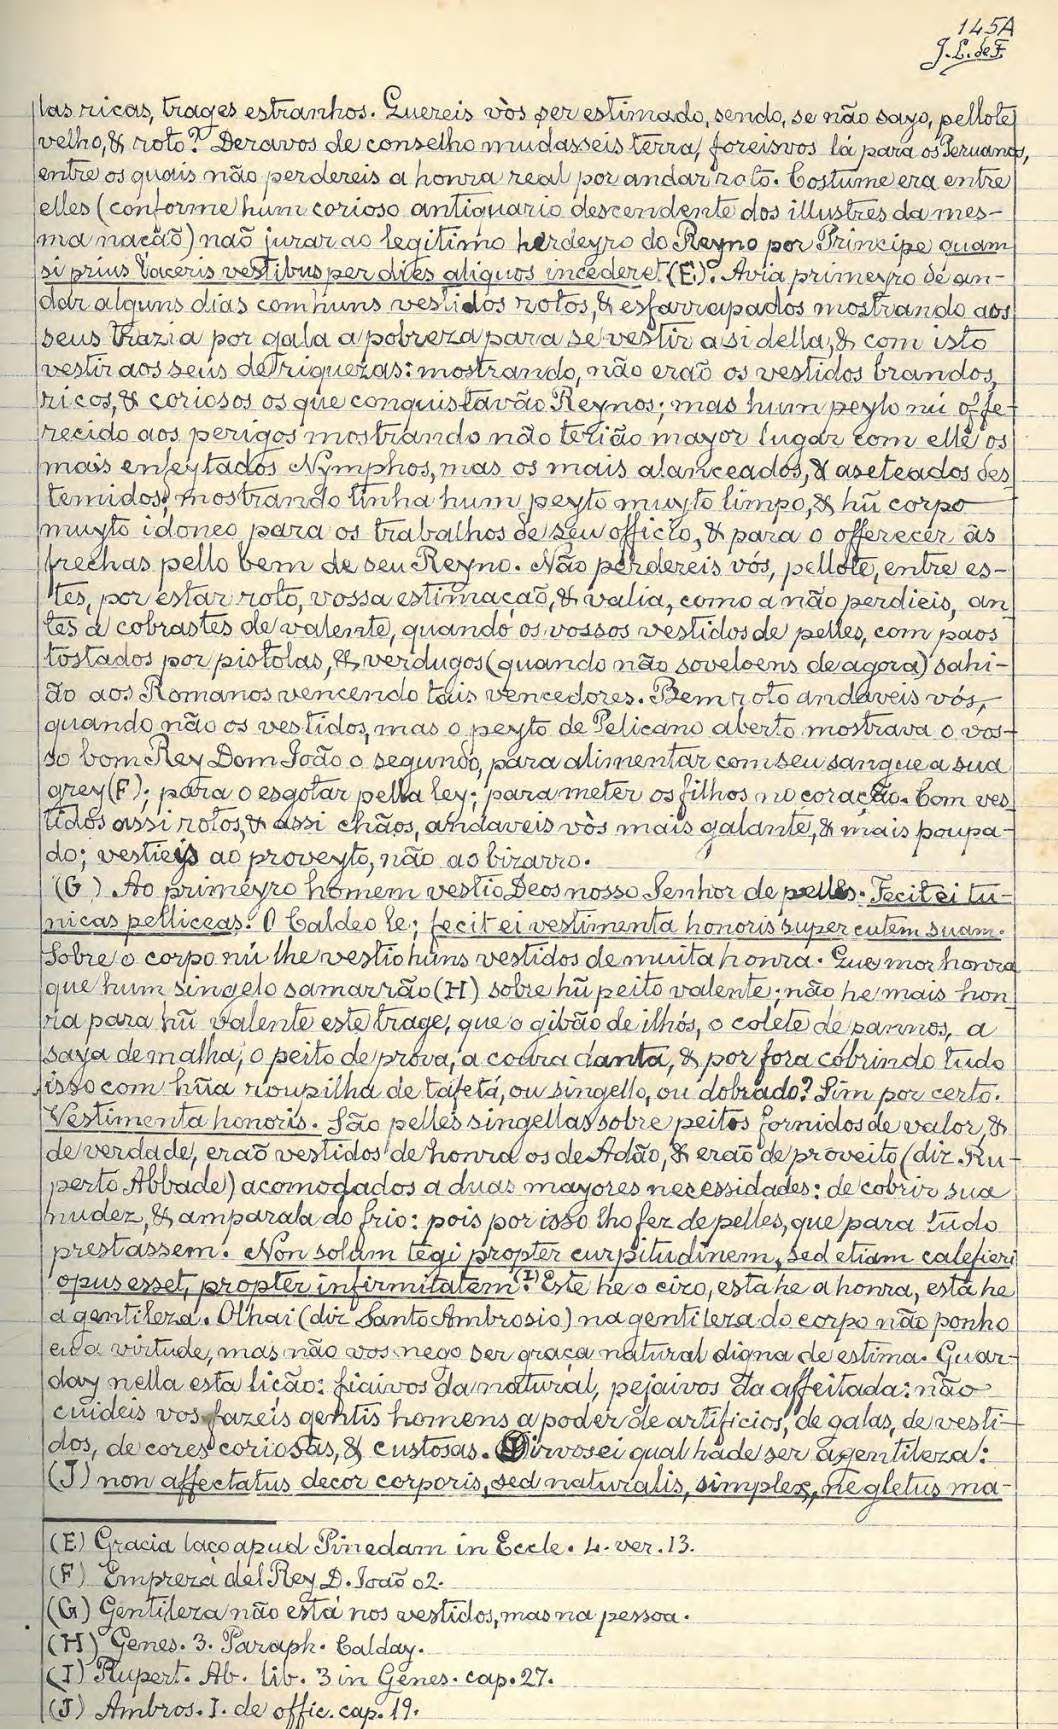 145A
J. L. de F.
las ricas, trages estranhos. Quereis vòs ser estimado, sendo, se não sayo, pellote
velho, & roto? Deravos de conselho mudasseis terra, foreisvos lá para os Peruanos,
entre os quais não perdereis a honra real por andar roto. Costume era entre
elles (conforme hum corioso antiquario descendente dos illustres da mes-
ma nação) naõ jurar ao legitimo herdeyro do Reyno por Principe quam
si prius laceris vestibus per dies aliquos incederet (E). Avia primeyro de an-
dar alguns dias com huns vestidos rotos, & esfarrapados mostrando aos
seus trazia por gala a pobreza para se vestir a si della, & com isto
vestir aos seus de riquezas: mostrando, não eraõ os vestidos brandos,
ricos, & coriosos os que conquistavão Reynos; mas hum peyto nú offe-
recido aos perigos mostrando não terião mayor lugar com elle os
mais enfeytados Nymphos, mas os mais alanceados, & aseteados des
temidos, mostrando tinha hum peyto muyto limpo, & hũ corpo
muyto idoneo para os trabalhos de seu officio, & para o offerecer ás
frechas pello bem de seu Reyno. Não perdereis vós, pellote, entre es-
tes, por estar roto, vossa estimação, & valia, como a não perdieis, an
tes a cobrastes de valente, quando os vossos vestidos de pelles, com paos
tostados por pistolas, & verdugos (quando não soveloens de agora) sahi-
ão aos Romanos vencendo tais vencedores. Bem roto andaveis vós,
quando não os vestidos, mas o peyto de Pelicano aberto mostrava o vos-
so bom Rey Dom João o segundo, para alimentar com seu sangue a sua
grey (F); para o esgotar pella ley; para meter os filhos no coração. Com ves
tidos assi rotos, & assi chãos, andaveis vòs mais galante, & mais poupa-
do; vestieis ao proveyto, não ao bizarro.
(G) Ao primeyro homem vestio Deos nosso Senhor de pelles. Fecit ei tu-
nicas pelliceas. O Caldeo le; fecit ei vestimenta honoris super cutem suam.
Sobre o corpo nú lhe vestio huns vestidos de muita honra. Que mor honra
que hum singelo samarrão (H) sobre hũ peito valente; não he mais hon
ra para hũ valente este trage, que o gibão de ilhós, o colete de pannos, a
saya de malha, o peito de prova, a coura danta, & por fora cobrindo tudo
isso com hũa roupilha de tafetá, ou singello, ou dobrado? Sim por certo.
Vestimenta honoris. São pelles singellas sobre peitos fornidos de valor, &
de verdade, eraõ vestidos de honra os de Adão, & eraõ de proveito (diz Ru-
perto Abbade) acomodados a duas mayores necessidades: de cobrir sua
nudez, & amparala do frio: pois por isso lho fez de pelles, que para tudo
prestassem. Non solum tegi propter curpitudinem, sed etiam calefieri
opus esset, propter infirmitatem (I). Este he o cizo, esta he a honra, esta he
a gentileza. Olhai (diz Santo Ambrosio) na gentileza do corpo não ponho
eu a virtude, mas não vos nego ser graça natural digna de estima. Guar-
day nella esta lição: ficaivos da natural, pejaivos da affeitada: não
cuideis vos fazeis gentis homens a poder de artificios, de galas, de vesti-
dos, de cores coriosas, & custosas. Dirvosei qual hade ser a gentileza:
(J) non affectatus decor corporis, sed naturalis, simplex, negletus ma-
(E) Gracia laço apud Pinedam in Eccle. 4. ver. 13.
(F) Empreza del Rey D. João o 2.
(G) Gentileza não está nos vestidos, mas na pessoa.
(H) Genes. 3. Paraph. Calday.
(I) Rupert. Ab. lib. 3 in Genes. cap. 27.
(J) Ambros. I. de offic. cap. 19.